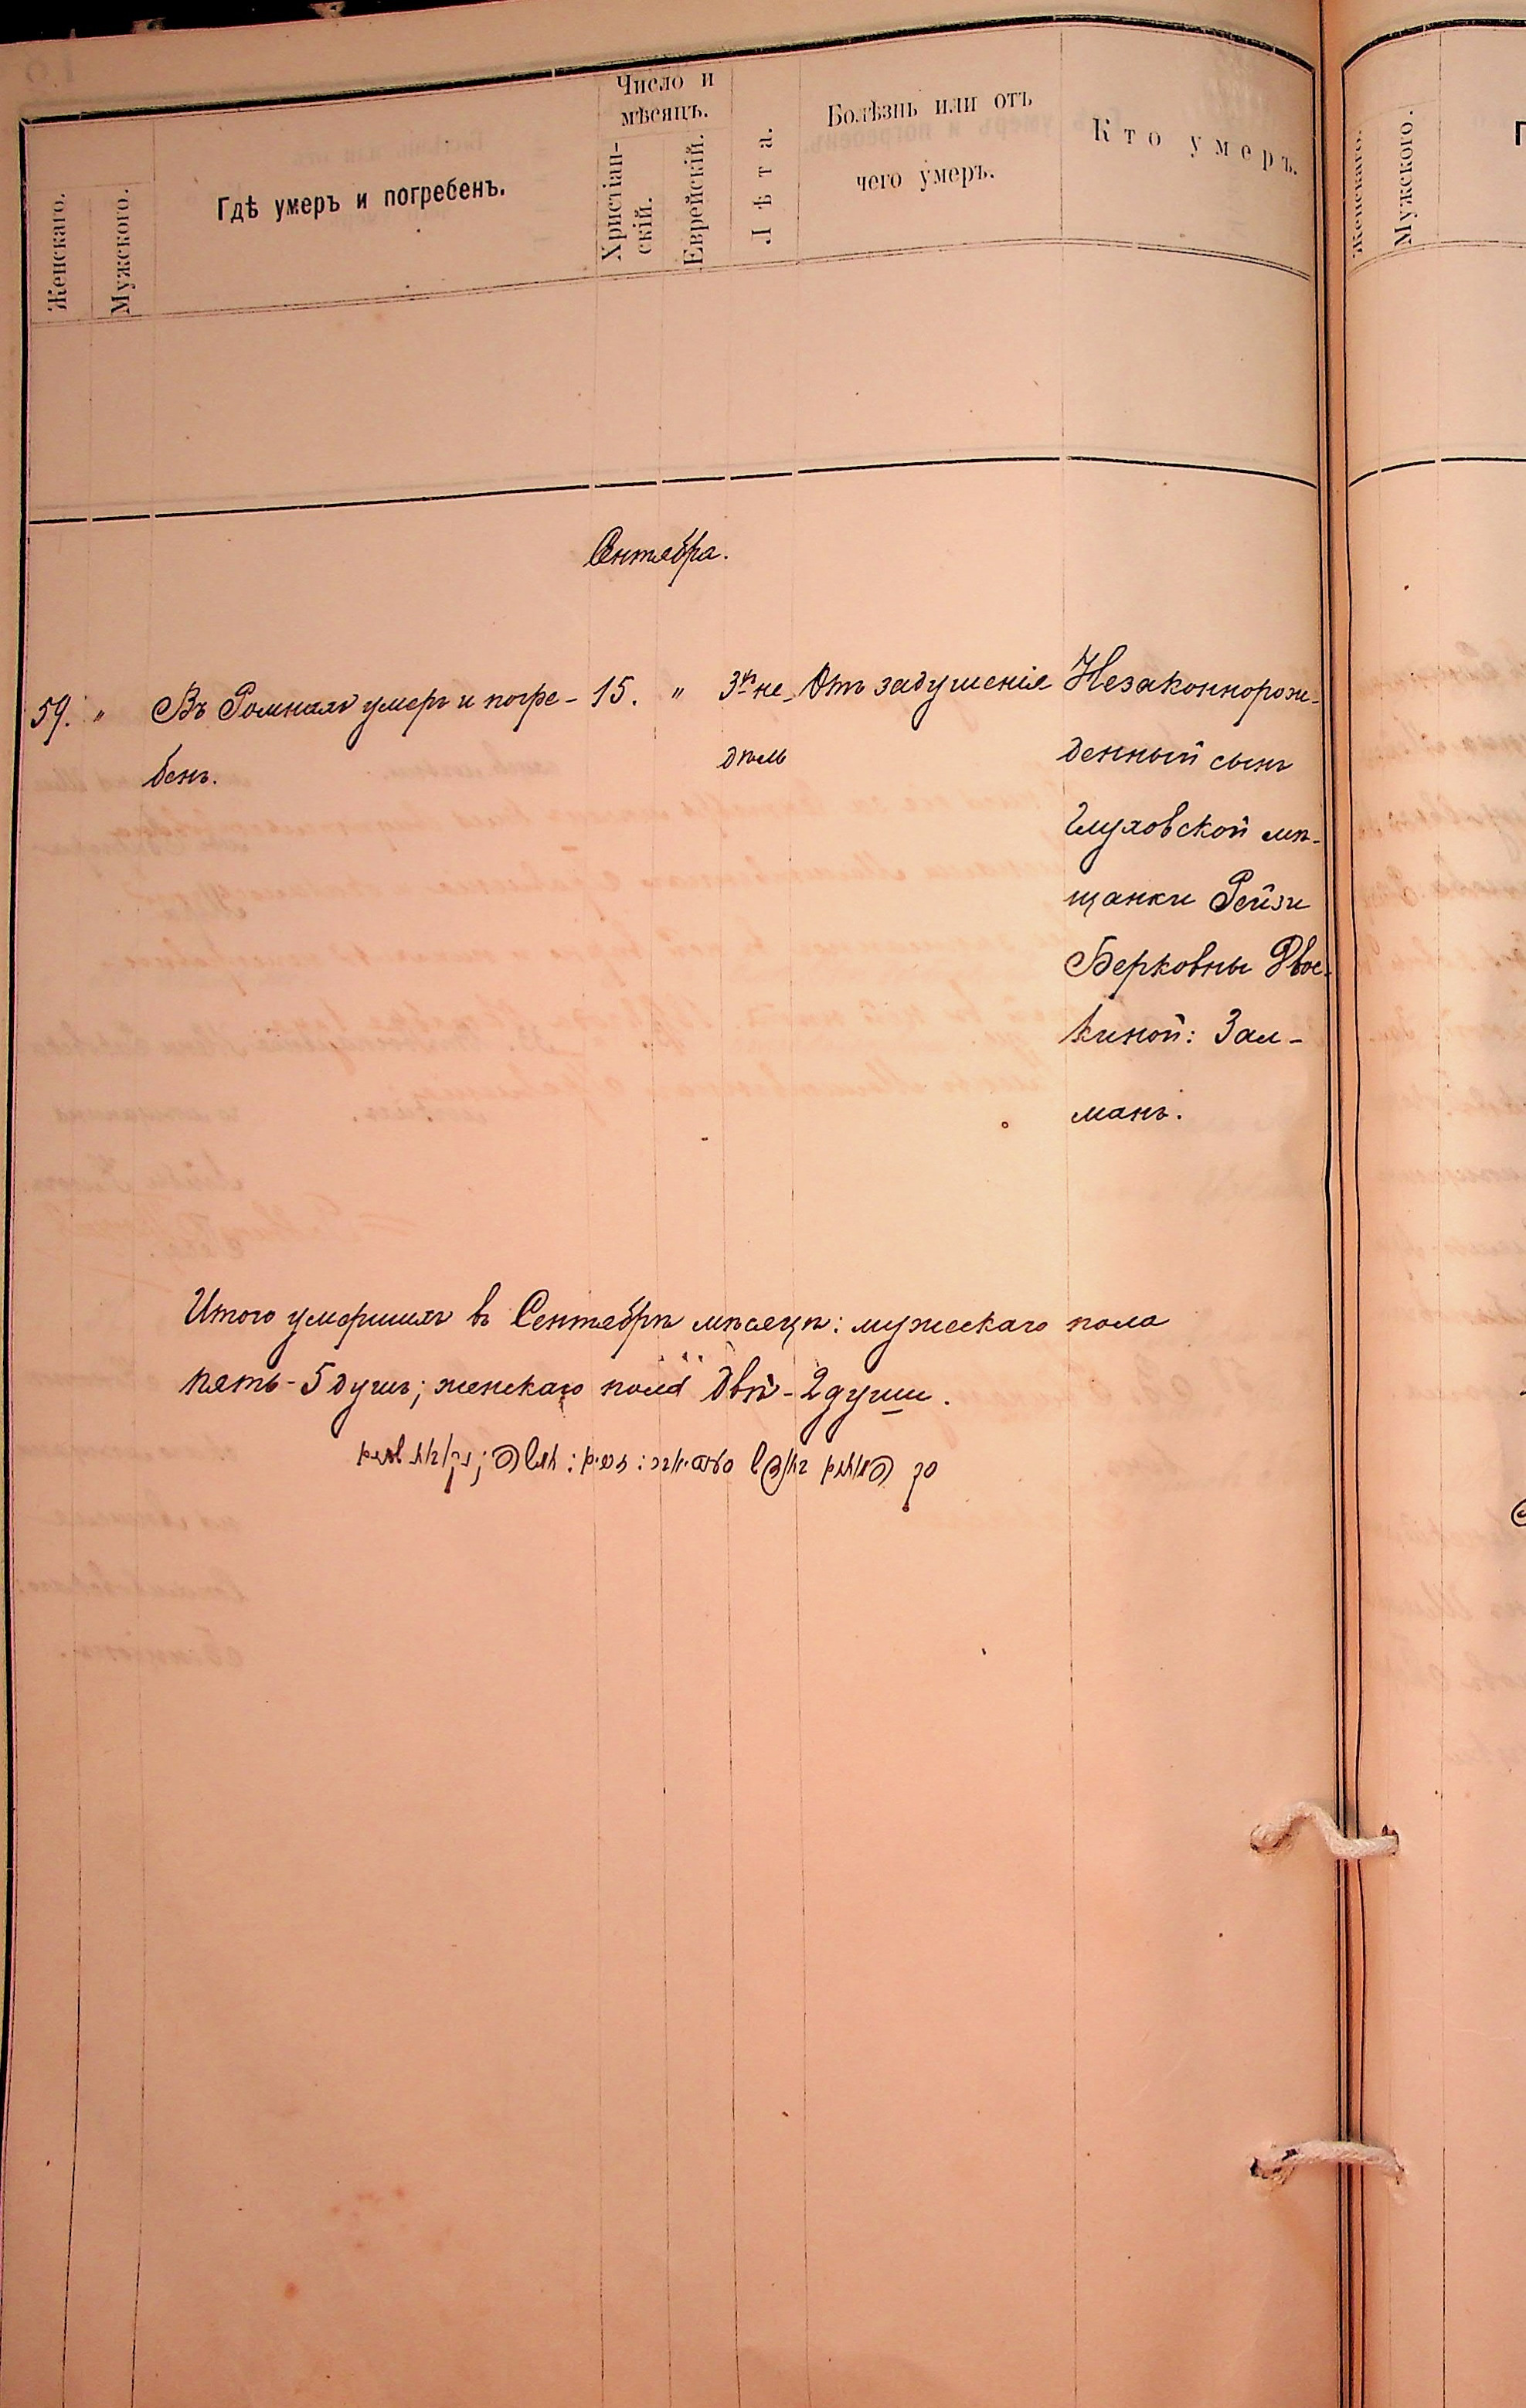 Женскаго.
Мужского.
Гдѣ умеръ и погребенъ.
Число и
мѣсяцъ.
Христіан-
скій.
Еврейскій.
Лѣта.
Болѣзнь или отъ
чего умеръ.
Кто умеръ.
Женскаго.
Мужского.
Сентября.
59. " Въ Ромнахъ умеръ и погре- 15. " 3хъ не- Отъ задушенія Незаконнорож-
бенъ. дѣль денный сынъ
Глуховской мѣ-
щанки Рейзи
Берковны Двос-
киной: Зал-
манъ.
Итого умершихъ въ Сентябрѣ мѣсяцѣ: мужескаго пола
пять - 5 душъ; женскаго пола двѣ - 2 души.